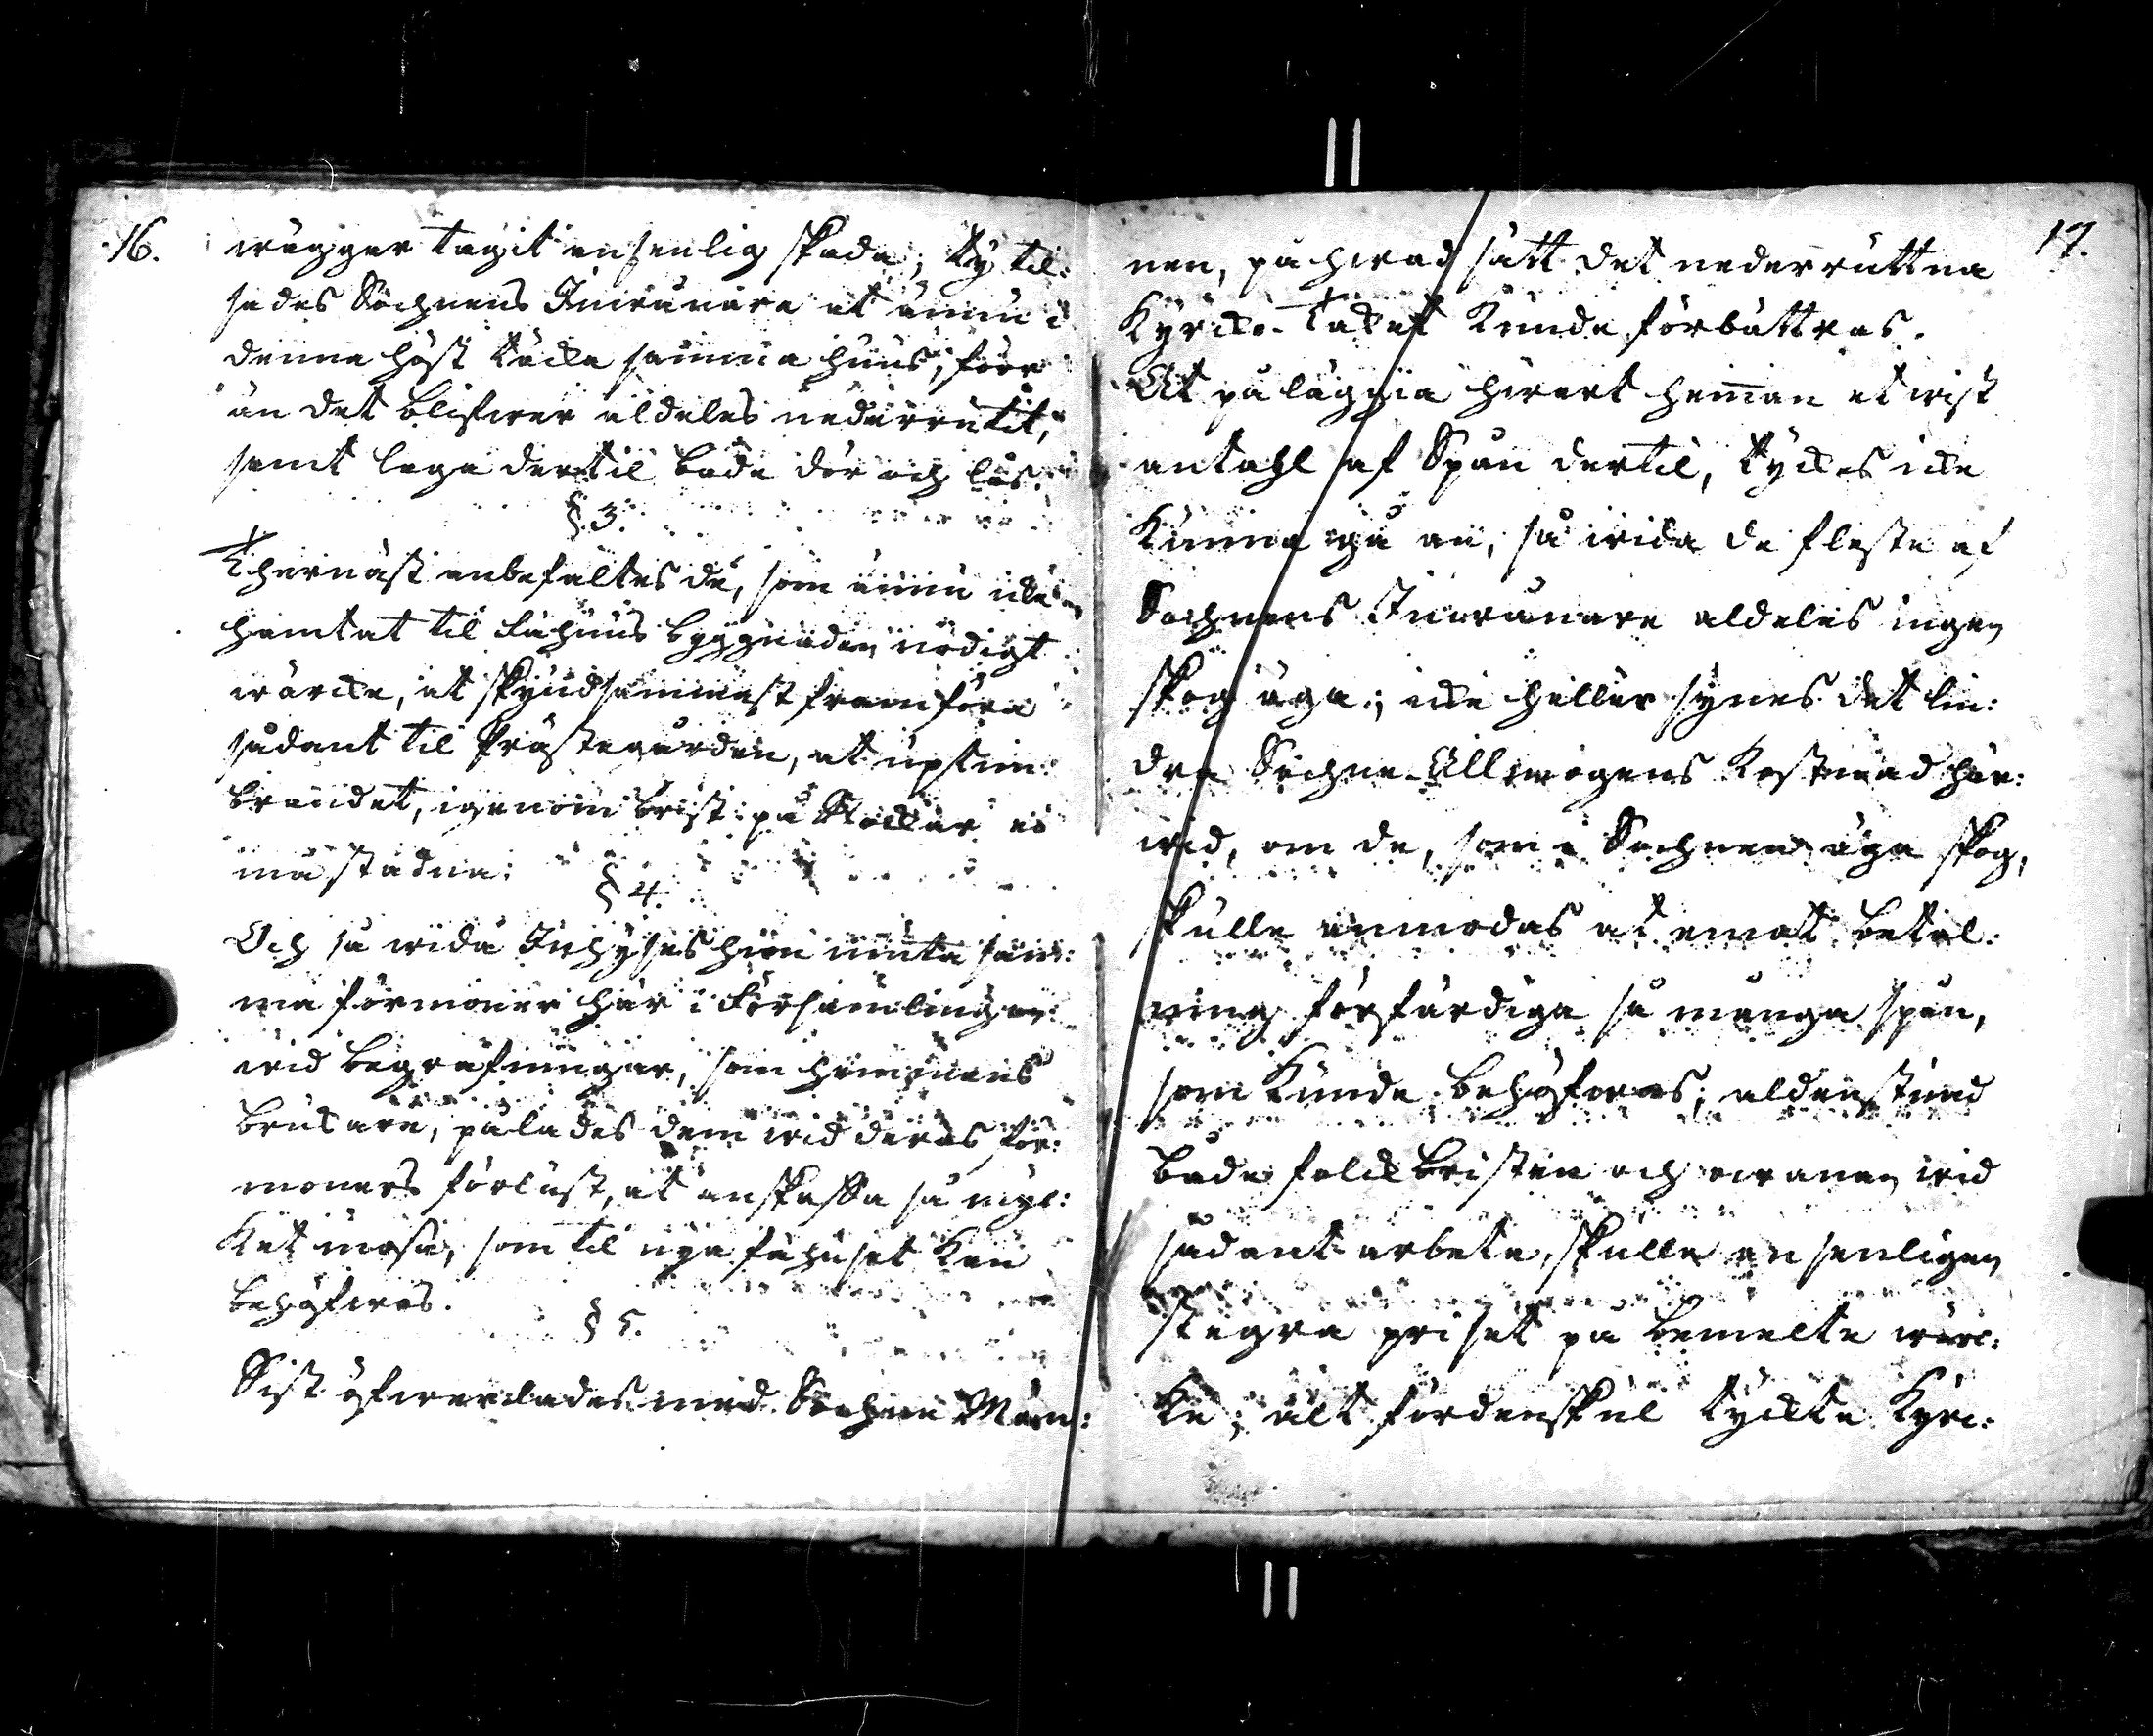 16.
wägger tagit ansenlig skada; ty til:
sades Sochnens Inwånare at ännu i
denna höst täcka samma huus, förr
än det blifwer aldeles nederrutit,
samt laga dertil både dör och lås.
§ 3.
Thernäst anbefaltes de, som ännu icke
hämtat til Fähuus byggnaden nödigt
wärcke, at skyndsammast framföra
sådant til Prästegården, at uptim:
brandet, igenom brist på Stockar ei
må stadna.
§ 4.
Och så wida Inhyses hion niuta sam:
ma förmoner här i Församlingen
wid begrafningar, som hemmens
brukare, pålades dem wid deras för:
moners förlust, at anskaffa så myc:
ket måsa, som til nya fähuset kan
behöfwas.
§ 5.
Sist öfwerlades med Sochne Män:
17.
nen, på hwad sätt det nederruttna
Kyrcko-Taket kunde förbättras.
At påläggia hwart heman et wist
antahl af Spån dertil, tyckes icke
kunna gå an, så wida de fleste af
Sochnens Inwånare aldeles ingen
skog äga; icke heller synes det lin:
dra Sochne-Allmogens Kostnad här:
wid, om de, som i Sochnen äga skog,
skulle anmodas at emot betal:
ning förfärdiga så många spån,
som kunde behöfwas; aldenstund
både folckbristen och owanan wid
sådant arbete, skulle ansenligen
stegra priset på bemelte wärc:
ke; alt fördenskul tyckte Kyrc: